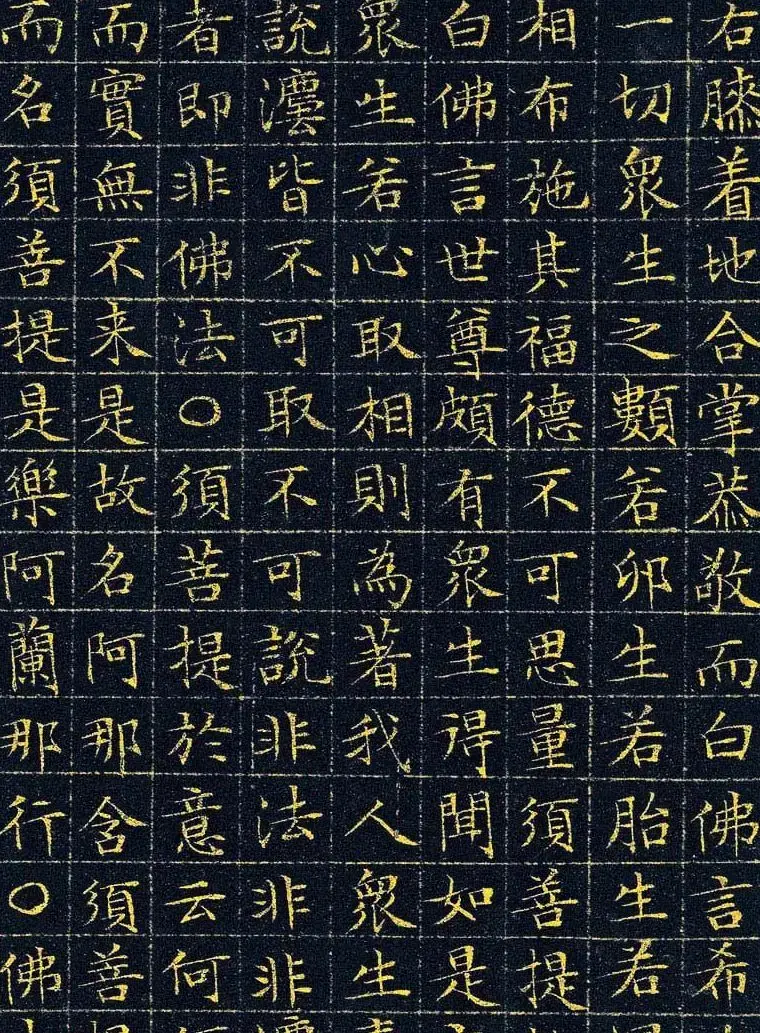 右膝着地合掌恭敬而白佛言希
一切衆生之數若卵生若胎生若
相布施其福德不可思量須菩提
白佛言世尊頗有衆生得聞如是
衆生若心取相則為著我人衆生
說灋皆不可取不可說非法非非
者即非佛法○須菩提於意云何
而實無不来是故名阿那含須菩
而名須菩提是樂阿蘭那行○佛